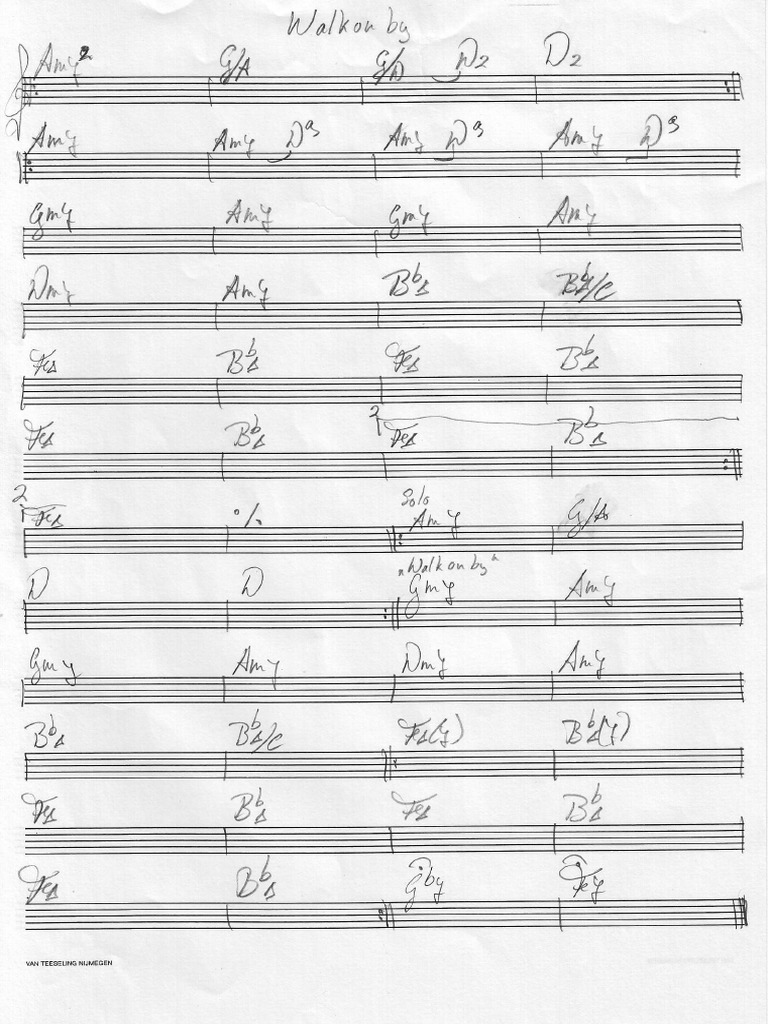 Walk on by
Am7 G/A G/D D2 D2
Am7 Am7 D9 Am7 D9 Am7 D9
Gm7 Am7 Gm7 Am7
Dm7 Am7 B♭Δ B♭Δ/C
FΔ B♭Δ FΔ B♭Δ
FΔ B♭Δ FΔ B♭Δ
2. Solo
FΔ ٪ Am7 G/A
"Walk on by"
D D Gm7 Am7
Gm7 Am7 Dm7 Am7
B♭Δ B♭Δ/C FΔ(7) B♭Δ(7)
FΔ B♭Δ FΔ B♭Δ
FΔ B♭Δ
VAN TEESELING NIJMEGEN